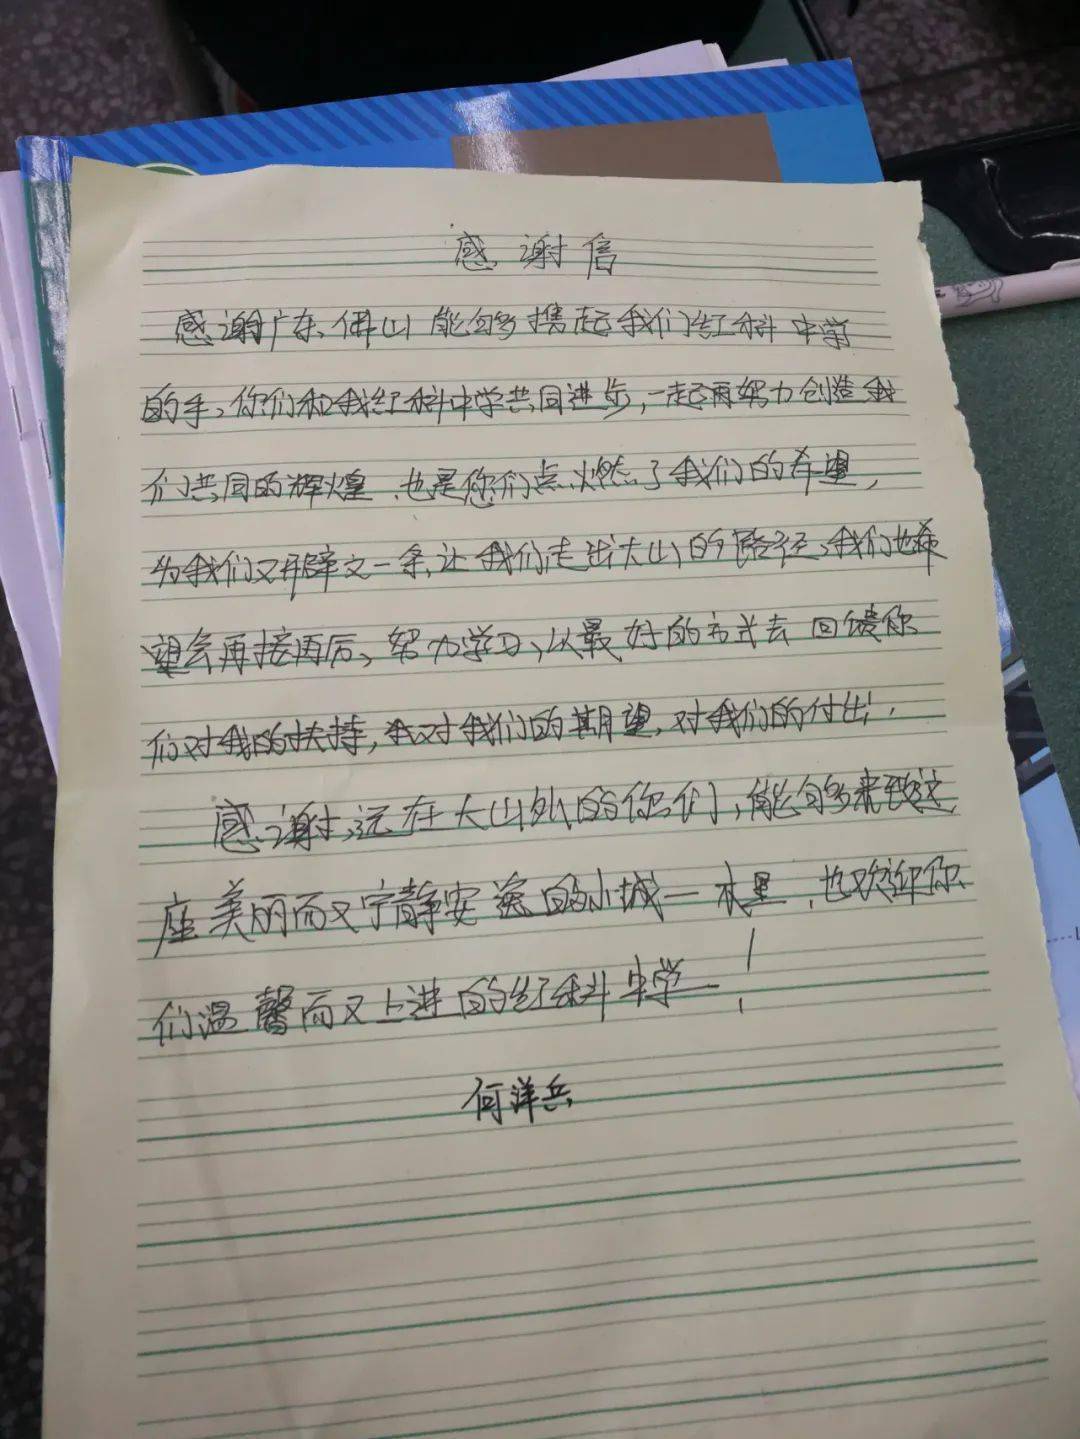 感谢信
感谢广东佛山能够携起我们红科中学
的手,你们和我红科中学共同进步,一起再努力创造我
们共同的辉煌,也是你们点燃了我们的希望,
为我们又开辟文一条,让我们走出大山的路径,我们也希
望会再接再厉、努力学习、以最好的方式去回馈你
们对我的扶持,我对我们的期望,对我们的付出,
感谢,远在大山外的你们,能够来到这
座美丽而又宁静安逸的小城一水星,也欢迎你
们温馨而又上进的红科中学一!
何洋兵